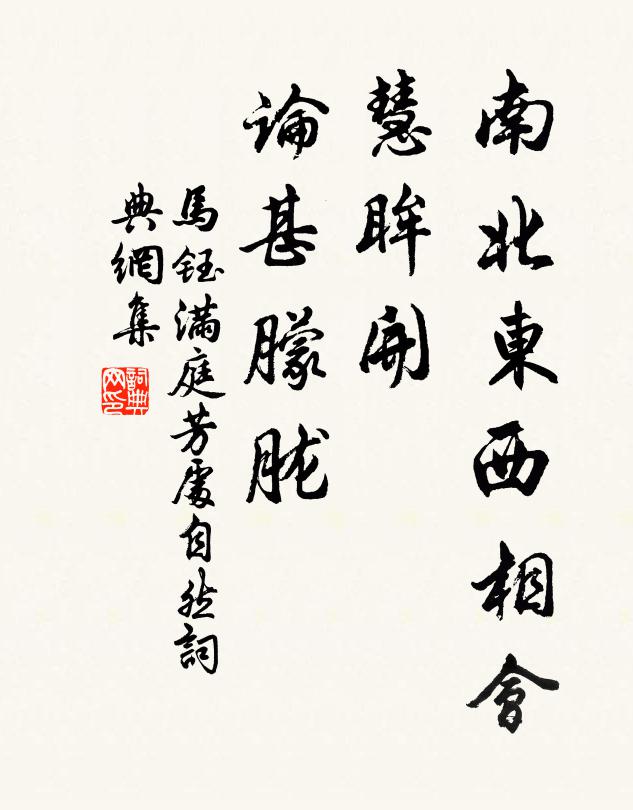 南北東西相會
慧眸開
論甚朦朧
馬鈺滿庭芳處自然詞
典網集
詞典网印